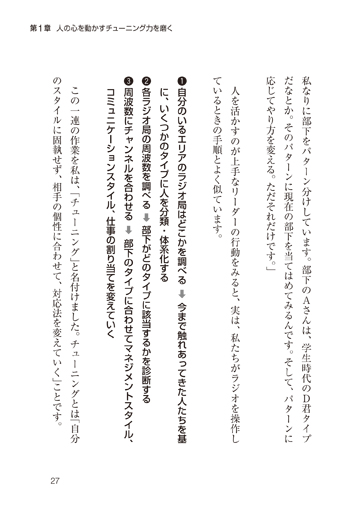 第1章 人の心を動かすチューニング力を磨く
私なりに部下をパターン分けしています。部下のAさんは、学生時代のD君タイプ
だなとか。そのパターンに現在の部下を当てはめてみるんです。そして、パターンに
応じてやり方を変える。ただそれだけです。」
人を活かすのが上手なリーダーの行動をみると、実は、私たちがラジオを操作し
ているときの手順とよく似ています。
❶ 自分のいるエリアのラジオ局はどこかを調べる ➡ 今まで触れあってきた人たちを基
に、いくつかのタイプに人を分類・体系化する
❷ 各ラジオ局の周波数を調べる ➡ 部下がどのタイプに該当するかを診断する
❸ 周波数にチャンネルを合わせる ➡ 部下のタイプに合わせてマネジメントスタイル、
コミュニケーションスタイル、仕事の割り当てを変えていく
この一連の作業を私は、「チューニング」と名付けました。チューニングとは「自分
のスタイルに固執せず、相手の個性に合わせて、対応法を変えていく」ことです。
27